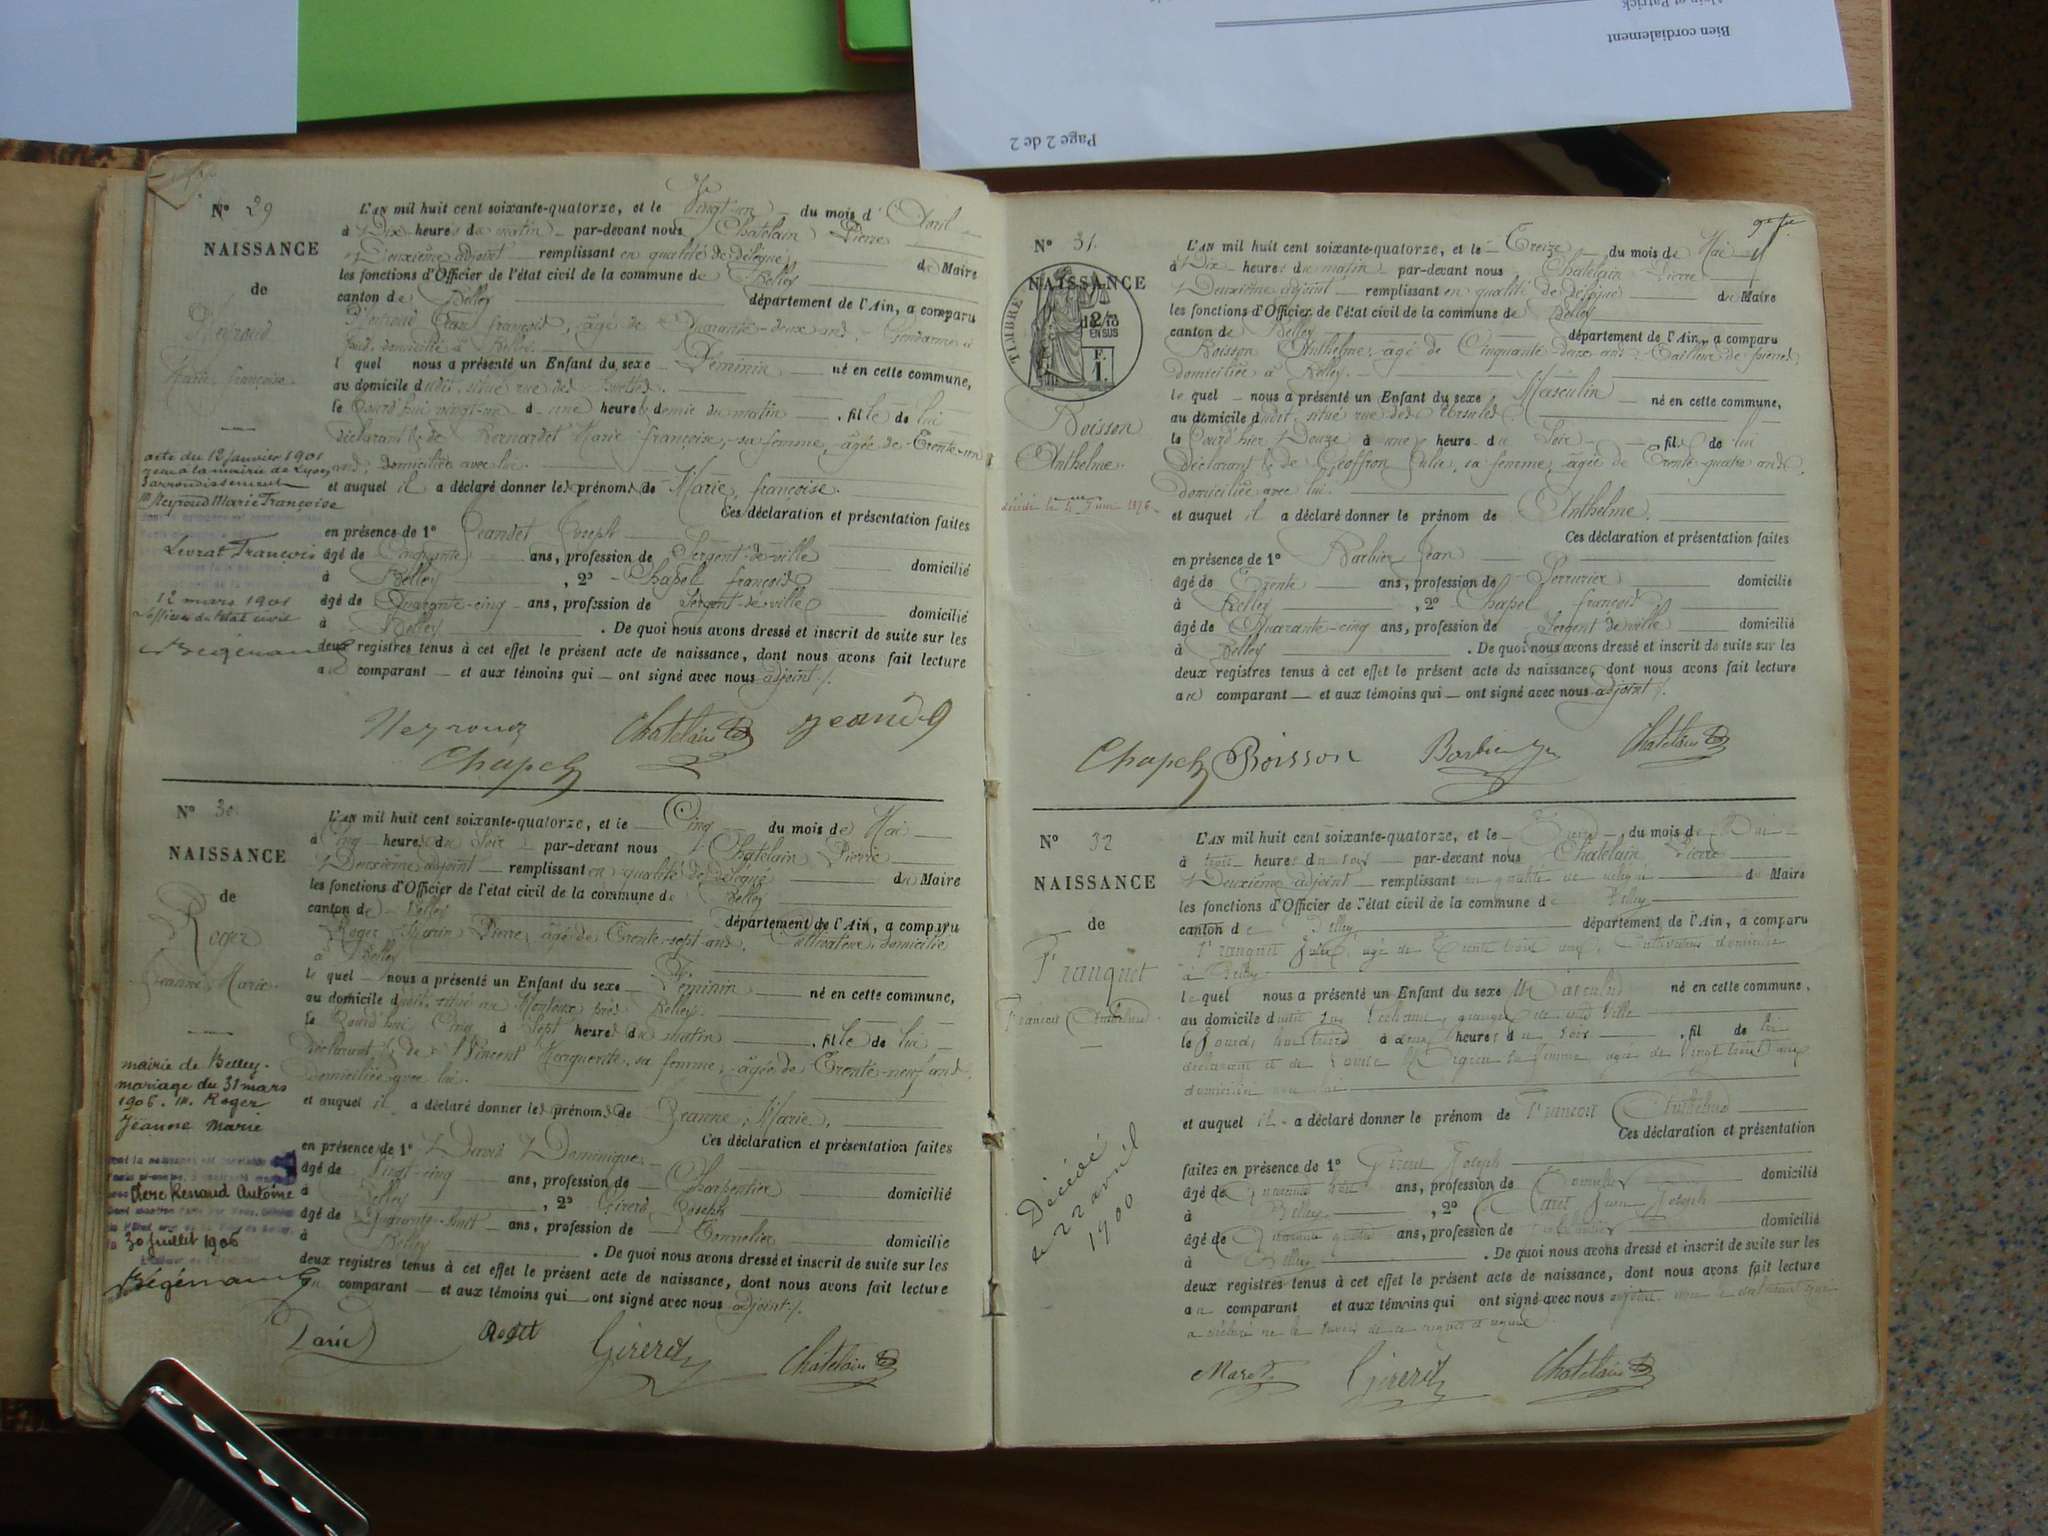 Bien cordialement
Page 2 de 2
N° 29
NAISSANCE
de
Neyroud
Marie françoise
acte du 12 janvier 1901
mairie de Lyon
3 arrondissement
m Neyroud Marie Françoise
Livrat François
12 mars 1901
L'officier de l'état civil
L'AN mil huit cent soixante-quatorze, et le Vingt-un du mois d'Avril
à Dix heures du matin par-devant nous Chatelain Pierre
Deuxième adjoint remplissant en qualité de délégué du Maire
les fonctions d'Officier de l'état civil de la commune de Belley
canton de Belley département de l'Ain, a comparu
Neyroud Jean françois, âgé de Quarante-deux ans, Gendarme à
domicilié à Belley
lequel nous a présenté un Enfant du sexe Féminin né en cette commune,
au domicile dudit, situé rue des
le Jourd'hui vingt-un à une heure demie du matin, fille de lui
déclarant & de Bernardet Marie françoise, sa femme, âgée de Trente-un
ans, domiciliée avec lui.
et auquel il a déclaré donner les prénoms de Marie, françoise.
Ces déclaration et présentation faites
en présence de 1° Jeandet Joseph
âgé de Cinquante ans, profession de Sergent-de-ville domicilié
à Belley, 2° Chapel françois
âgé de Quarante-cinq ans, profession de Sergent-de-ville domicilié
à Belley. De quoi nous avons dressé et inscrit de suite sur les
deux registres tenus à cet effet le présent acte de naissance, dont nous avons fait lecture
au comparant et aux témoins qui ont signé avec nous adjoint.
Neyroud Chatelain
Chapel
N° 30
NAISSANCE
de
Roger
Jeanne Marie
mairie de Belley.
mariage du 31 mars
1906. m. Roger
Jeanne Marie
Renaud Antoine
30 Juillet 1906
L'AN mil huit cent soixante-quatorze, et le Cinq du mois de Mai
à Cinq heures du Soir par-devant nous Chatelain Pierre
Deuxième adjoint remplissant en qualité de délégué du Maire
les fonctions d'Officier de l'état civil de la commune de Belley
canton de Belley département de l'Ain, a comparu
Roger Marin Pierre, âgé de Trente-sept ans, Cultivateur, domicilié
à Belley
lequel nous a présenté un Enfant du sexe Féminin né en cette commune,
au domicile dudit, situé au près Belley.
le Jourd'hui Cinq à Sept heures du matin, fille de lui
déclarant, & de Vincent Marguerite, sa femme, âgée de Trente-neuf ans,
domiciliée avec lui.
et auquel il a déclaré donner les prénoms de Jeanne, Marie.
Ces déclaration et présentation faites
en présence de 1° David Dominique
âgé de Vingt-cinq ans, profession de Charpentier domicilié
à Belley, 2° Girerd Joseph
âgé de Quarante-huit ans, profession de Tonnelier domicilié
à Belley. De quoi nous avons dressé et inscrit de suite sur les
deux registres tenus à cet effet le présent acte de naissance, dont nous avons fait lecture
au comparant et aux témoins qui ont signé avec nous adjoint.
David Girerd Chatelain
N° 31.
NAISSANCE
TIMBRE
2/10
EN SUS
F.
1.
Boisson
Anthelme.
L'AN mil huit cent soixante-quatorze, et le Treize du mois de Mai
à Dix heures du matin par-devant nous Chatelain Pierre
Deuxième adjoint remplissant en qualité de délégué du Maire
les fonctions d'Officier de l'état civil de la commune de Belley
canton de Belley département de l'Ain, a comparu
Boisson Anthelme, âgé de Cinquante-deux ans, Tailleur de pierres
domicilié à Belley.
lequel nous a présenté un Enfant du sexe Masculin né en cette commune,
au domicile dudit, situé rue des Ursules.
le Jourd'hier Douze à une heure du Soir fils de lui
déclarant & de Geoffron Julie, sa femme, âgée de Trente-quatre ans,
domiciliée avec lui.
et auquel il a déclaré donner le prénom de Anthelme.
Ces déclaration et présentation faites
en présence de 1° Barbier Jean
âgé de Trente ans, profession de Serrurier domicilié
à Belley, 2° Chapel françois
âgé de Quarante-cinq ans, profession de Sergent de ville domicilié
à Belley. De quoi nous avons dressé et inscrit de suite sur les
deux registres tenus à cet effet le présent acte de naissance, dont nous avons fait lecture
au comparant et aux témoins qui ont signé avec nous adjoint.
Chapel Boisson Barbier Chatelain
N° 32
NAISSANCE
de
Franquet
François Anthelme
Décédé
le 22 avril
1900
L'AN mil huit cent soixante-quatorze, et le Treize du mois de Mai
à trois heures du soir par-devant nous Chatelain Pierre
Deuxième adjoint remplissant en qualité de délégué du Maire
les fonctions d'Officier de l'état civil de la commune de Belley
canton de Belley département de l'Ain, a comparu
Franquet âgé de Trente trois ans, Cultivateur domicilié
à Belley
lequel nous a présenté un Enfant du sexe Masculin né en cette commune,
au domicile
le Jourd'hui treize à deux heures du soir, fils de lui
déclarant et de Louise sa femme âgée de Vingt trois ans
domiciliée avec lui
et auquel il a déclaré donner le prénom de François Anthelme
Ces déclaration et présentation
faites en présence de 1° Girerd Joseph
âgé de Quarante huit ans, profession de Tonnelier domicilié
à Belley, 2° Maret Jean Joseph
âgé de Quarante quatre ans, profession de domicilié
à Belley. De quoi nous avons dressé et inscrit de suite sur les
deux registres tenus à cet effet le présent acte de naissance, dont nous avons fait lecture
au comparant et aux témoins qui ont signé avec nous adjoint non le déclarant qui
a déclaré ne le savoir de ce requis
Maret Girerd Chatelain